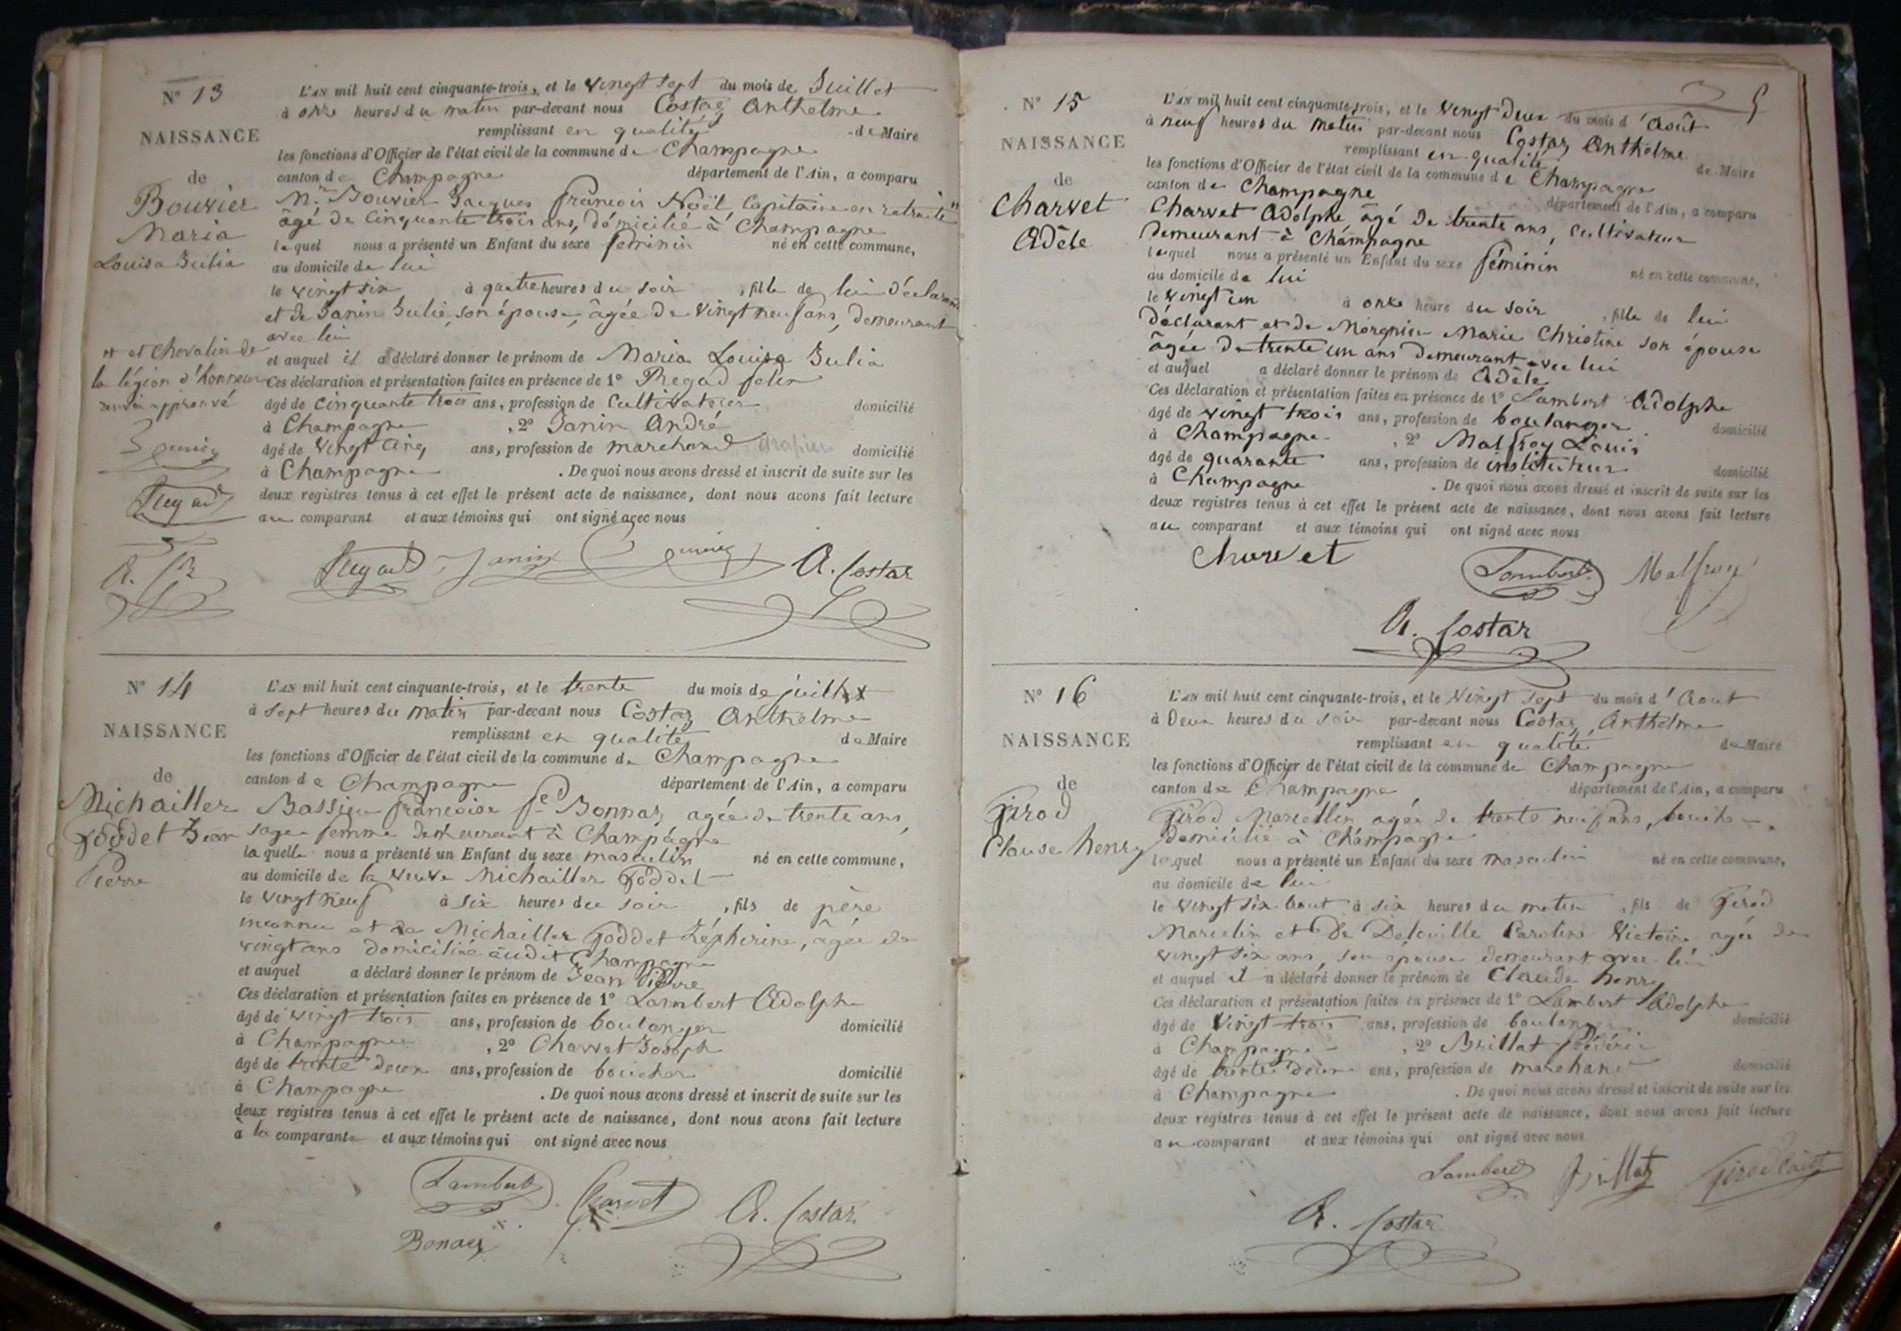 N° 13
NAISSANCE
de
Bouvier
Maria
Louisa Julia
et chevalier de
la légion d'honneur
renvoi approuvé
L'AN mil huit cent cinquante-trois, et le vingt sept du mois de Juillet
à onze heures du matin par-devant nous Costaz Anthelme
remplissant en qualité de Maire
les fonctions d'Officier de l'état civil de la commune de Champagne
canton de Champagne département de l'Ain, a comparu
Mr Bouvier Jacques françois Noël Capitaine en retraite
âgé de Cinquante trois ans, domicilié à Champagne
lequel nous a présenté un Enfant du sexe féminin né en cette commune,
au domicile de lui
le vingt six à quatre heures du soir , fille de lui déclarant
et de Janin Julie, son épouse, âgée de vingt neuf ans, demeurant
avec lui
et auquel il a déclaré donner le prénom de Maria Louisa Julia
Ces déclaration et présentation faites en présence de 1°
âgé de cinquante trois ans, profession de Cultivateur domicilié
à Champagne , 2° Janin André
âgé de vingt cinq ans, profession de marchand drapier domicilié
à Champagne . De quoi nous avons dressé et inscrit de suite sur les
deux registres tenus à cet effet le présent acte de naissance, dont nous avons fait lecture
au comparant et aux témoins qui ont signé avec nous
Janin A. Costaz
N° 14
NAISSANCE
de
Michaillex
Goddet Jean
Pierre
L'AN mil huit cent cinquante-trois, et le trente du mois de juillet
à sept heures du matin par-devant nous Costaz Anthelme
remplissant en qualité de Maire
les fonctions d'Officier de l'état civil de la commune de Champagne
canton de Champagne département de l'Ain, a comparu
françoise Bonnaz, agée de trente ans,
sage femme demeurant à Champagne
laquelle nous a présenté un Enfant du sexe masculin né en cette commune,
au domicile de la veuve Michaillex Goddet
le vingt neuf à six heures du soir , fils de père
inconnu et de Michaillex Goddet Zéphirine, âgée de
vingt ans domiciliée audit Champagne
et auquel a déclaré donner le prénom de Jean Pierre
Ces déclaration et présentation faites en présence de 1° Lambert Adolphe
âgé de vingt trois ans, profession de boulanger domicilié
à Champagne , 2° Charvet Joseph
âgé de trente deux ans, profession de boucher domicilié
à Champagne . De quoi nous avons dressé et inscrit de suite sur les
deux registres tenus à cet effet le présent acte de naissance, dont nous avons fait lecture
à la comparante et aux témoins qui ont signé avec nous
Lambert Charvet A. Costaz
Bonaz
5
N° 15
NAISSANCE
de
Charvet
Adèle
L'AN mil huit cent cinquante-trois, et le vingt deux du mois d'Août
à neuf heures du matin par-devant nous Costaz Anthelme
remplissant en qualité de Maire
les fonctions d'Officier de l'état civil de la commune de Champagne
canton de Champagne département de l'Ain, a comparu
Charvet Adolphe âgé de trente ans, cultivateur
demeurant à Champagne
lequel nous a présenté un Enfant du sexe féminin né en cette commune,
au domicile de lui
le vingt un à onze heure du soir , fille de lui
déclarant et de Marie Christine son épouse
âgée de trente un ans demeurant avec lui
et auquel a déclaré donner le prénom de Adèle
Ces déclaration et présentation faites en présence de 1° Lambert Adolphe
âgé de vingt trois ans, profession de boulanger domicilié
à Champagne , 2° Malfroy Louis
âgé de quarante ans, profession de instituteur domicilié
à Champagne . De quoi nous avons dressé et inscrit de suite sur les
deux registres tenus à cet effet le présent acte de naissance, dont nous avons fait lecture
au comparant et aux témoins qui ont signé avec nous
Charvet Lambert Malfroy
A. Costaz
N° 16
NAISSANCE
de
Girod
Claude henry
L'AN mil huit cent cinquante-trois, et le vingt sept du mois d'Aout
à deux heures du soir par-devant nous Costaz, Anthelme
remplissant en qualité de Maire
les fonctions d'Officier de l'état civil de la commune de Champagne
canton de Champagne département de l'Ain, a comparu
Girod Marcellin agée de trente neuf ans,
domicilié à Champagne
lequel nous a présenté un Enfant du sexe masculin né en cette commune,
au domicile de lui
le vingt six à six heures du matin , fils de Girod
Marcelin et de Caroline Victoire, agée de
vingt six ans, son épouse demeurant avec lui
et auquel il a déclaré donner le prénom de Claude henry
Ces déclaration et présentation faites en présence de 1° Lambert Adolphe
âgé de vingt trois ans, profession de boulanger domicilié
à Champagne , 2° Brillat
âgé de trente deux ans, profession de marchand domicilié
à Champagne . De quoi nous avons dressé et inscrit de suite sur les
deux registres tenus à cet effet le présent acte de naissance, dont nous avons fait lecture
au comparant et aux témoins qui ont signé avec nous
Lambert Brillat Girod
A. Costaz